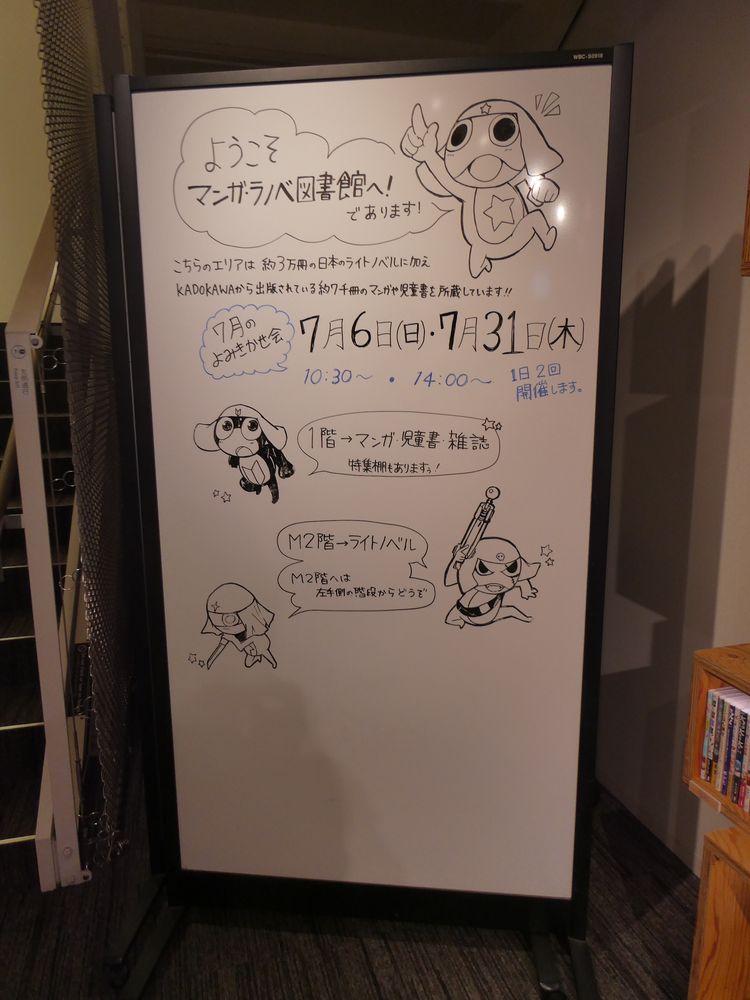 WBC-S0918
ようこそ
マンガ・ラノベ図書館へ!
であります!
こちらのエリアは 約3万冊の日本のライトノベルに加え
KADOKAWAから出版されている約7千冊のマンガや児童書を所蔵しています!!
7月の
よみきかせ会
7月6日(日)・7月31日(木)
10:30〜 ・ 14:00〜
1日2回
開催します。
1階→マンガ・児童書・雑誌
特集棚もありますっ!
M2階→ライトノベル
M2階へは
左手側の階段からどうぞ